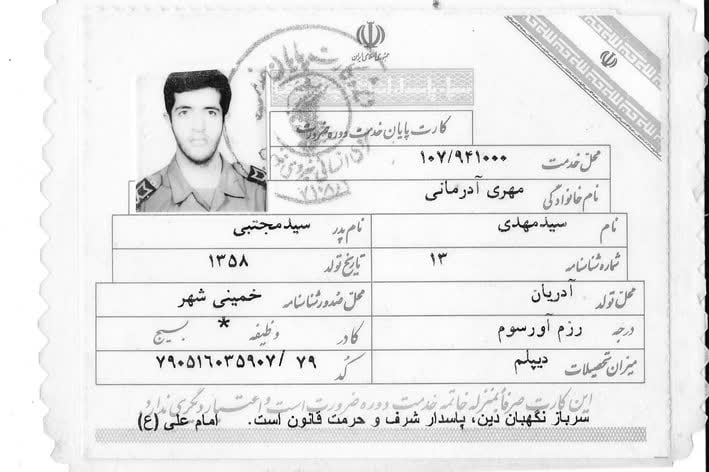 جمهوری اسلامی ایران
سپاه پاسداران
کارت پایان خدمت دوره ضرورت
محل خدمت ۱۰۷/۹۴۱۰۰۰
نام خانوادگی مهری آدرمانی
نام سیدمهدی نام پدر سیدمجتبی
شماره شناسنامه ۱۳ تاریخ تولد ۱۳۵۸
محل تولد آدریان محل صدور شناسنامه خمینی شهر
درجه رزم آورسوم کادر وظیفه * بسیج
میزان تحصیلات دیپلم کد ۷۹۰۵۱۶۰۳۵۹۰۷/ ۷۹
این کارت صرفاً بمنزله خاتمه خدمت دوره ضرورت است و اعتبار دیگری ندارد
سرباز نگهبان دین، پاسدار شرف و حرمت قانون است. امام علی (ع)